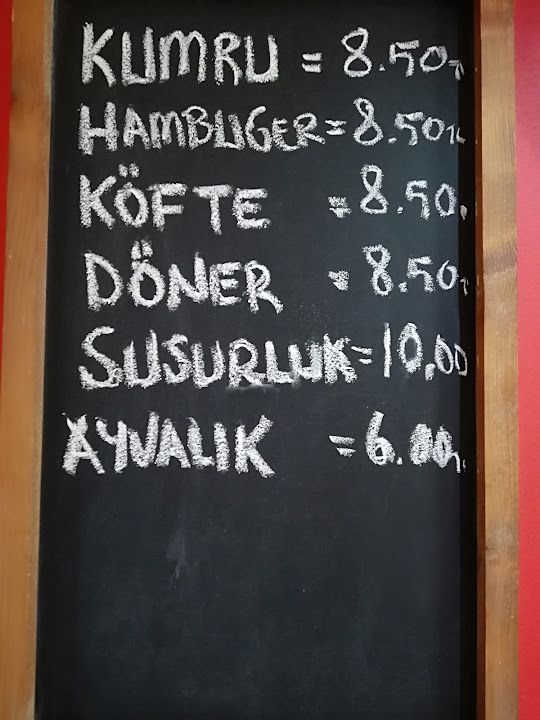 KUMRU = 8.50
HAMBUGER = 8.50
KÖFTE = 8.50
DÖNER = 8.50
SUSURLUK = 10.00
AYVALIK = 6.00